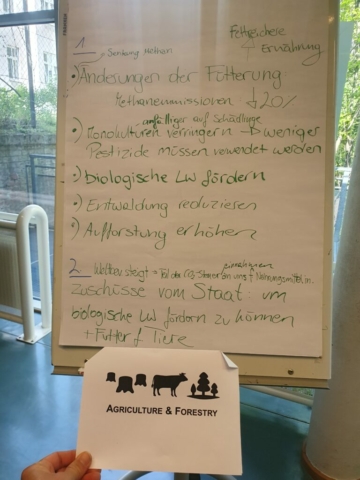 1 Senkung Methan
Fettreichere
Ernährung
·) Änderungen der Fütterung
Methanemmissionen ↓ 20%
anfälliger auf Schädlinge
·) Monokulturen verringern → weniger
Pestizide müssen verwendet werden
·) biologische LW fördern
·) Entwaldung reduzieren
·) Aufforstung erhöhen
2 steigt →
Zuschüsse vom Staat: um
biologische LW fördern zu können
+ Futter f. Tiere
AGRICULTURE & FORESTRY